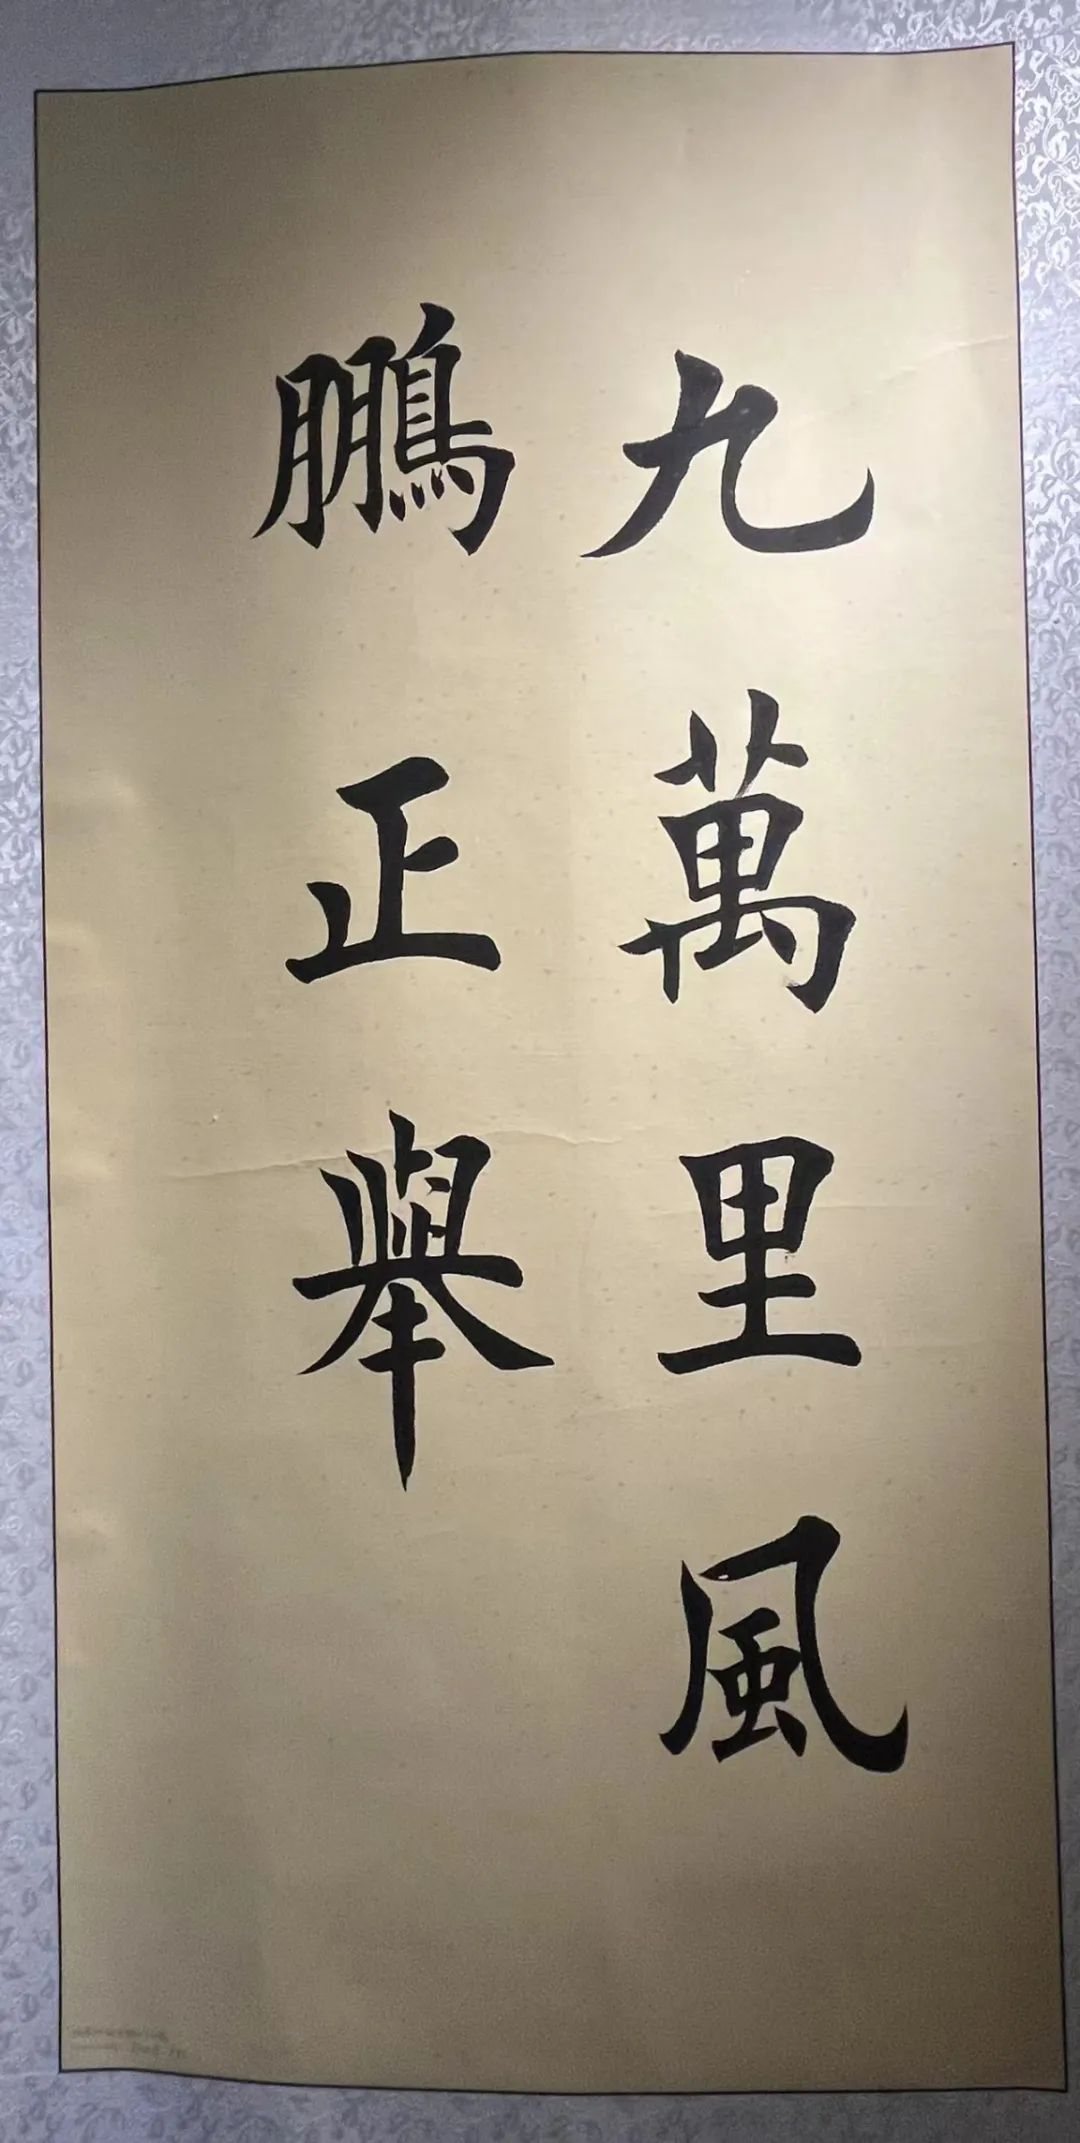 九萬里風
鵬正舉